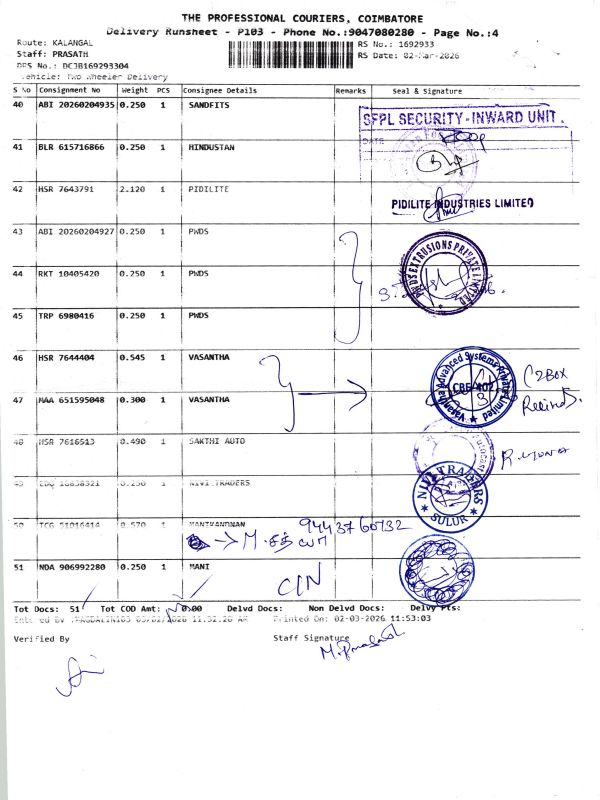 THE PROFESSIONAL COURIERS, COIMBATORE
Delivery Runsheet - P103 - Phone No.:9047080280 - Page No.:4
Route: KALANGAL
RS No.: 1692933
Staff: PRASATH
RS Date: 02-Mar-2026
DRS No.: DCJB169293304
Vehicle: Two Wheeler Delivery
S No Consignment No Weight PCS Consignee Details Remarks Seal & Signature
40 ABI 20260204935 0.250 1 SANDFITS
SFPL SECURITY-INWARD UNIT.
DATE
41 BLR 615716866 0.250 1 HINDUSTAN
42 HSR 7643791 2.120 1 PIDILITE
PIDILITE INDUSTRIES LIMITED
43 ABI 20260204927 0.250 1 PWDS
PWDS EXTRUSIONS PRIVATE LIMITED
44 RKT 10405420 0.250 1 PWDS
45 TRP 6980416 0.250 1 PWDS
46 HSR 7644404 0.545 1 VASANTHA
Vasantha Advanced Systems Private Limited
CBE 402
C2BOX
47 MAA 651595048 0.300 1 VASANTHA
48 HSR 7616513 0.490 1 SAKTHI AUTO
49 0.250 1 NIVI.TRADERS
NIVI TRADERS
SULUR
50 TCG 51016414 0.570 1 MANIKANDAN
9443760732
51 NDA 906992280 0.250 1 MANI
CIN
Tot Docs: 51 Tot COD Amt: 0.00 Delvd Docs: Non Delvd Docs: Delvy Pts:
Printed On: 02-03-2026 11:53:03
Verified By
Staff Signature
M. Prasath